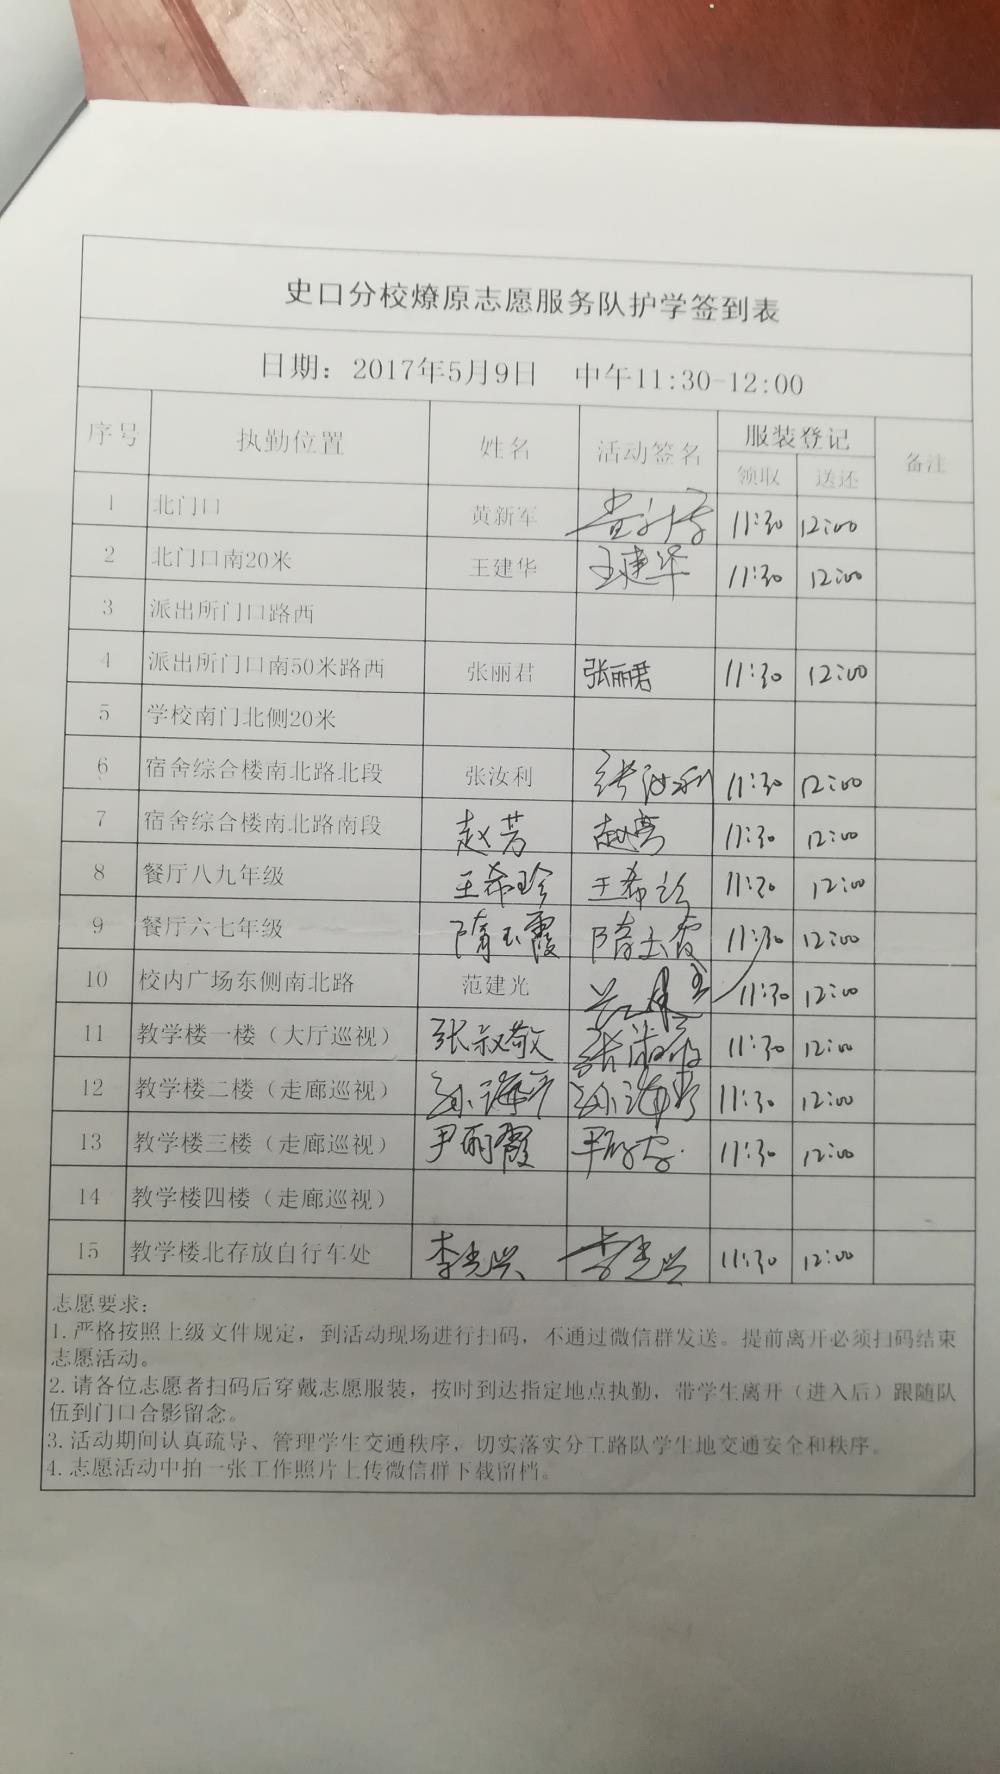 史口分校燎原志愿服务队护学签到表
日期：2017年5月9日 中午11:30-12:00
序号 执勤位置 姓名 活动签名 服装登记 备注
领取 送还
1 北门口 黄新军 11:30 12:00
2 北门口南20米 王建华 王建华 11:30 12:00
3 派出所门口路西
4 派出所门口南50米路西 张丽君 张丽君 11:30 12:00
5 学校南门北侧20米
6 宿舍综合楼南北路北段 张汝利 张汝利 11:30 12:00
7 宿舍综合楼南北路南段 赵芳 赵芳 11:30 12:00
8 餐厅八九年级 王希珍 王希珍 11:30 12:00
9 餐厅六七年级 隋玉霞 隋玉霞 11:30 12:00
10 校内广场东侧南北路 范建光 11:30 12:00
11 教学楼一楼（大厅巡视） 张淑敬 张淑敬 11:30 12:00
12 教学楼二楼（走廊巡视） 11:30 12:00
13 教学楼三楼（走廊巡视） 尹丽霞 尹丽霞 11:30 12:00
14 教学楼四楼（走廊巡视）
15 教学楼北存放自行车处 李光兴 李光兴 11:30 12:00
志愿要求：
1.严格按照上级文件规定，到活动现场进行扫码，不通过微信群发送。提前离开必须扫码结束
志愿活动。
2.请各位志愿者扫码后穿戴志愿服装，按时到达指定地点执勤，带学生离开（进入后）跟随队
伍到门口合影留念。
3.活动期间认真疏导、管理学生交通秩序，切实落实分工路队学生地交通安全和秩序。
4.志愿活动中拍一张工作照片上传微信群下载留档。